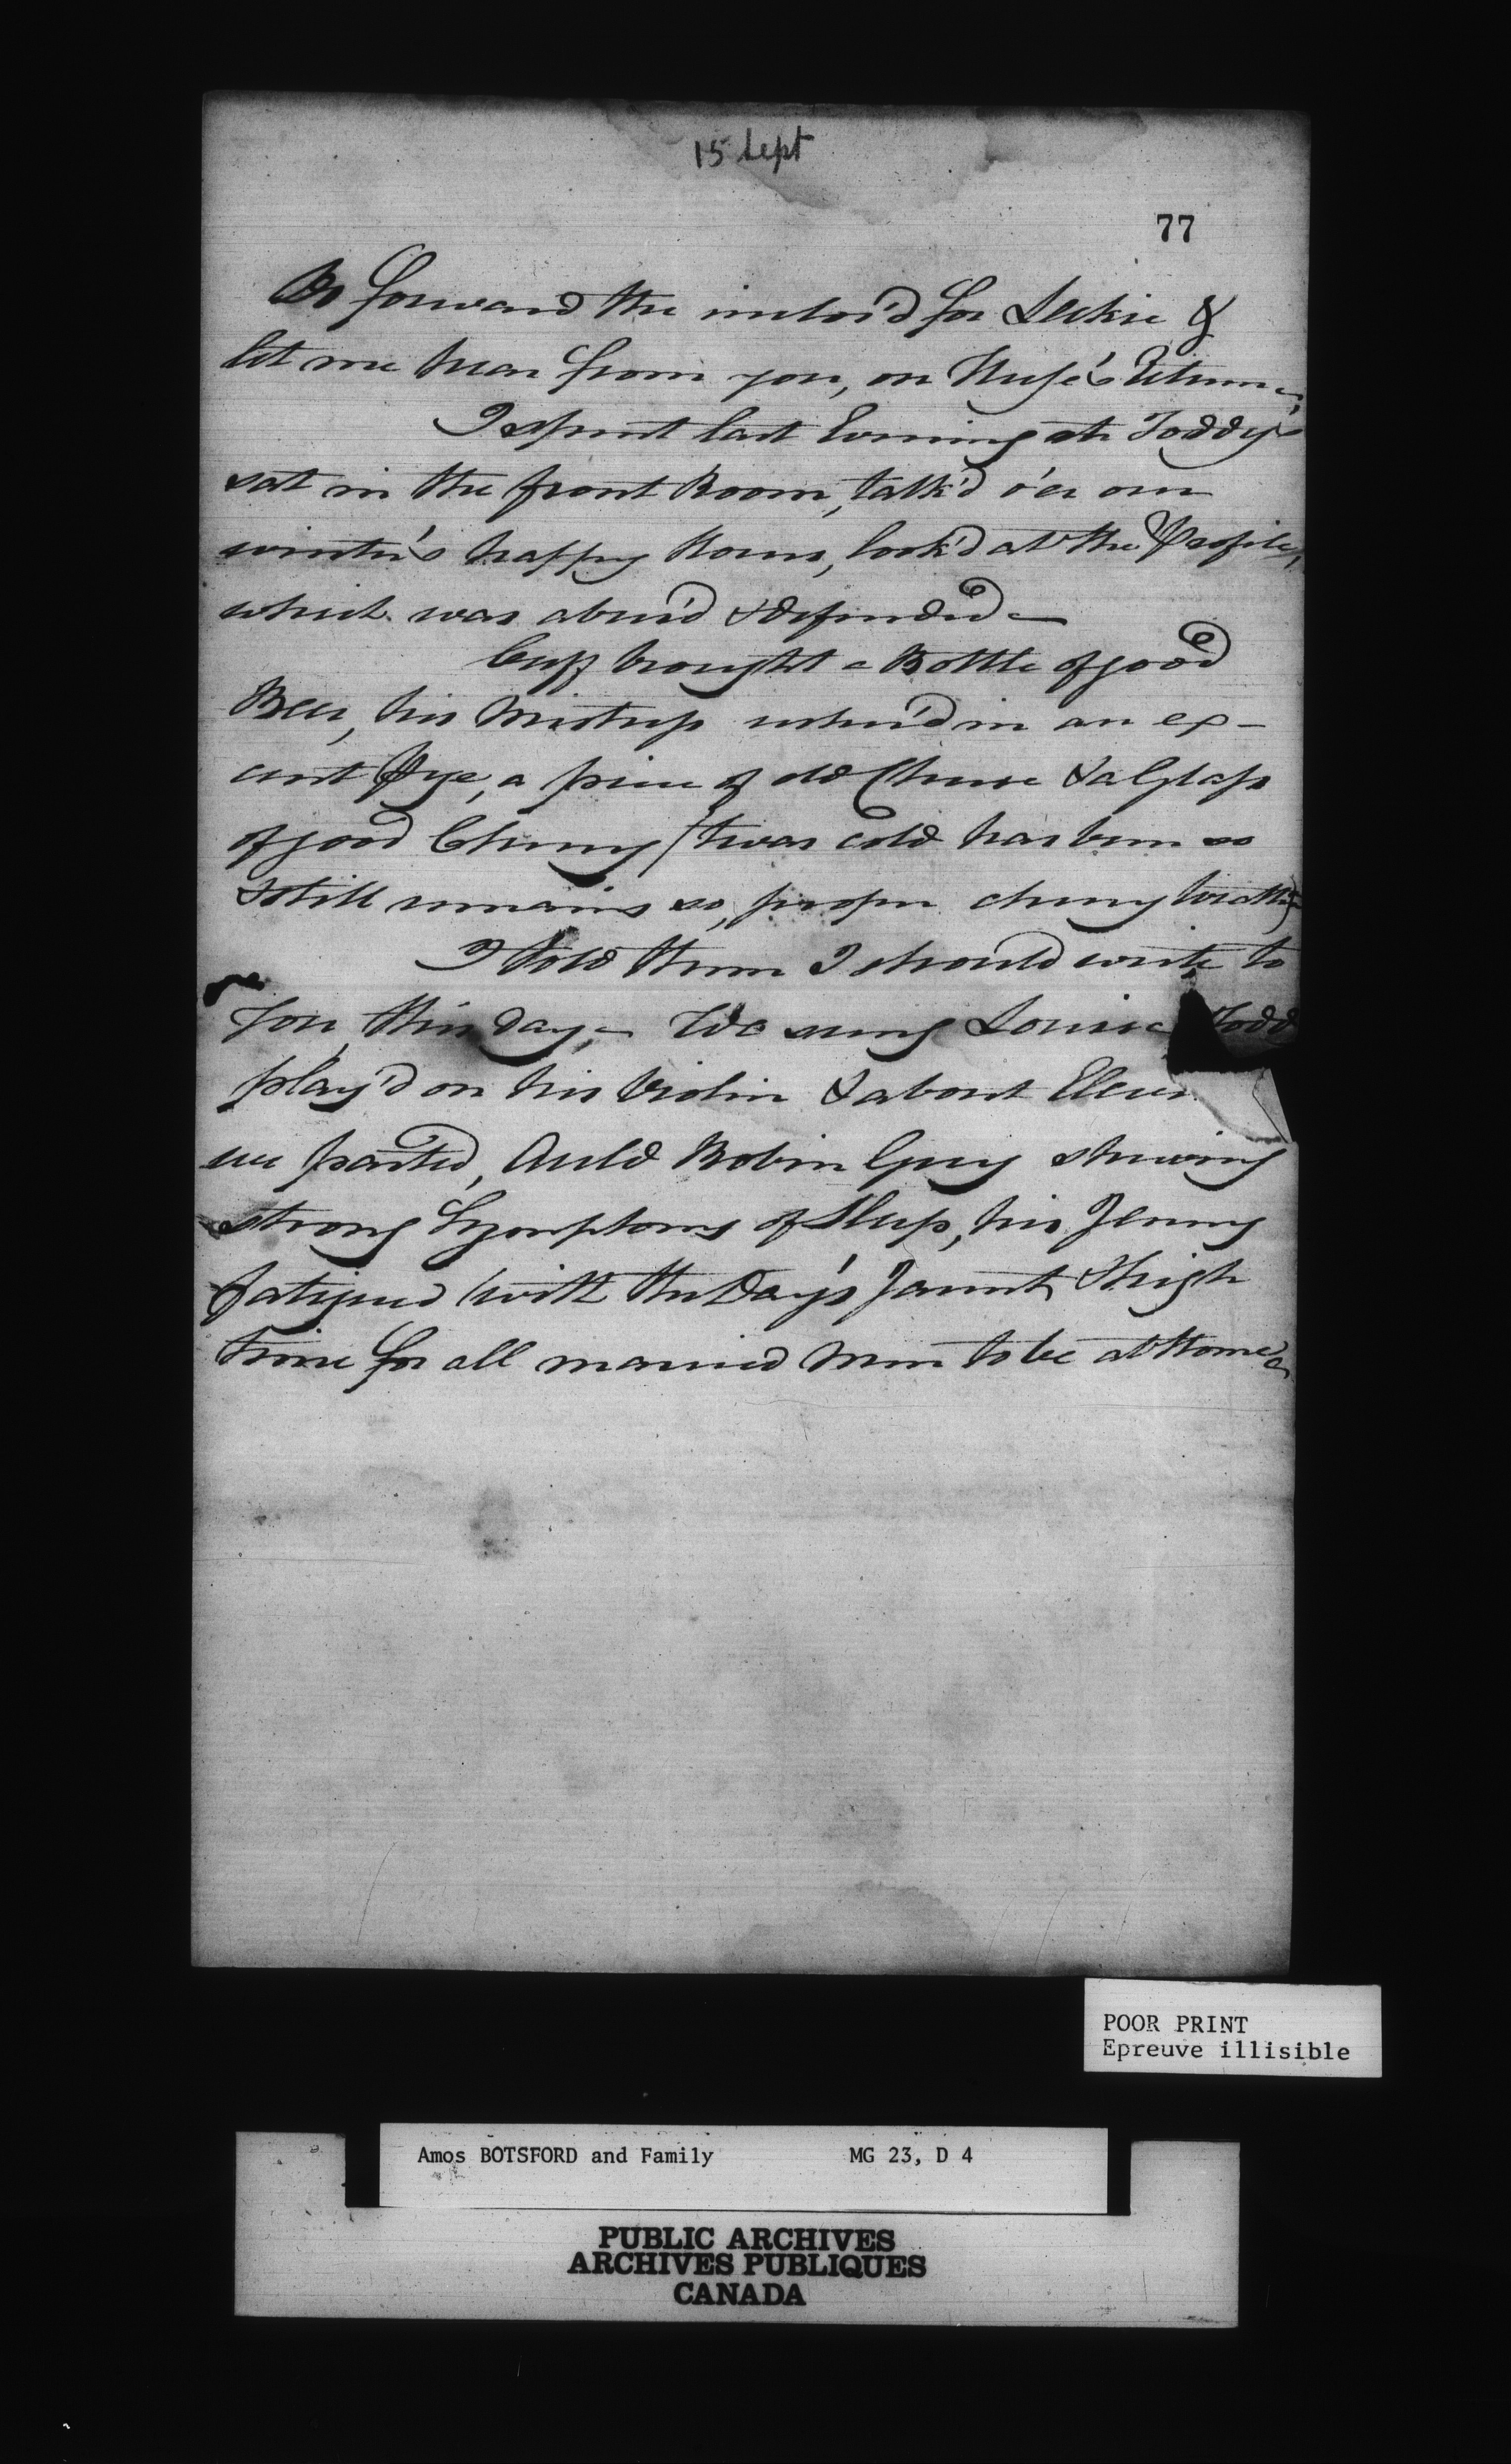 15 Sept
77
Do forward the inclos'd for Leckie &
let me hear from you, on Huse's Return
I spent last Evening at Toddy's
sat in the front Room, talk'd o'er our
winter's happy Hours, look'd at the Profile,
which was abus'd & defended
Cuff brought a Bottle of good
Beer, his Mistress usher'd in an ex-
cent Pye, a piece of old Cheese & a Glass
of good Cherry / twas cold has been so
& still remains so, proper cherry Weather
I told them I should write to
You this day, We sung Louisa Todd
play'd on his Violin & about Eleven
we parted, Auld Robin Grey shewing
strong Symptoms of Sleep, his Jenny
fatigued with the Day's Jaunt, & high
time for all married Men to be at Home
POOR PRINT
Epreuve illisible
Amos BOTSFORD and Family MG 23, D 4
PUBLIC ARCHIVES
ARCHIVES PUBLIQUES
CANADA